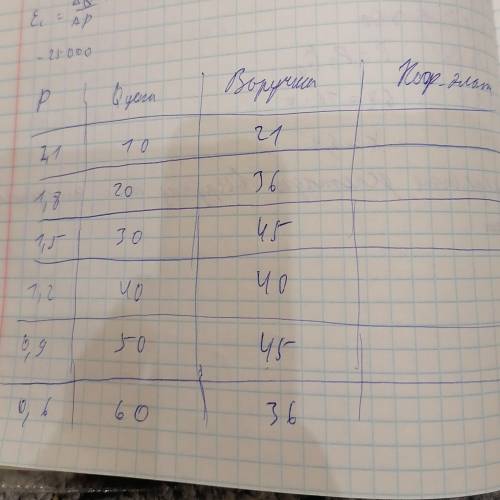 ΔQ
E = ΔP
-25000
P Q Выручка Коэф. элат
2,1 10 21
1,8 20 36
1,5 30 45
1,2 40 40
0,9 50 45
0,6 60 36